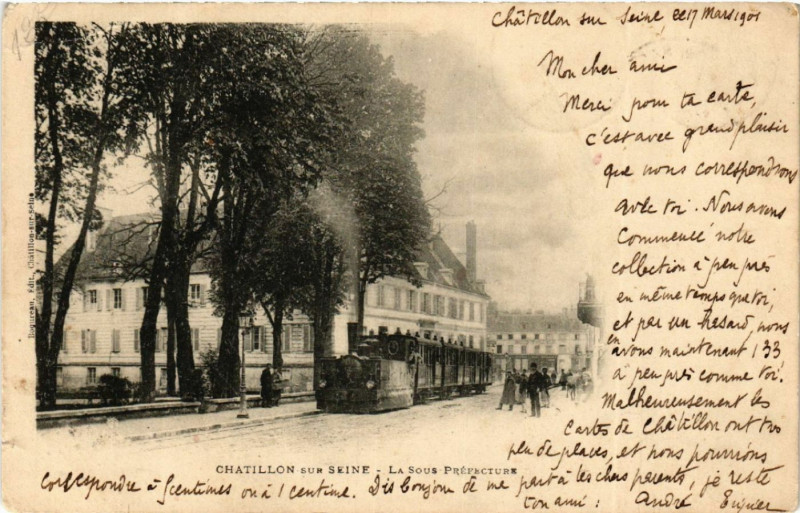 Châtillon sur Seine le 17 Mars 1901
Mon cher ami
Merci pour ta carte,
c'est avec grand plaisir
que nous correspondrons
avec toi. Nous avons
commencé notre
collection à peu près
en même temps que toi,
et par un hasard, nous
en avons maintenant 133
à peu près comme toi.
Malheureusement les
cartes de Châtillon ont très
peu de places, et nous pourrions
correspondre à 5 centimes ou à 1 centime. Dis bonjour de ma part à tes chers parents, je reste
ton ami : André
CHATILLON SUR SEINE - LA SOUS PRÉFECTURE
Édit., Châtillon-sur-Seine